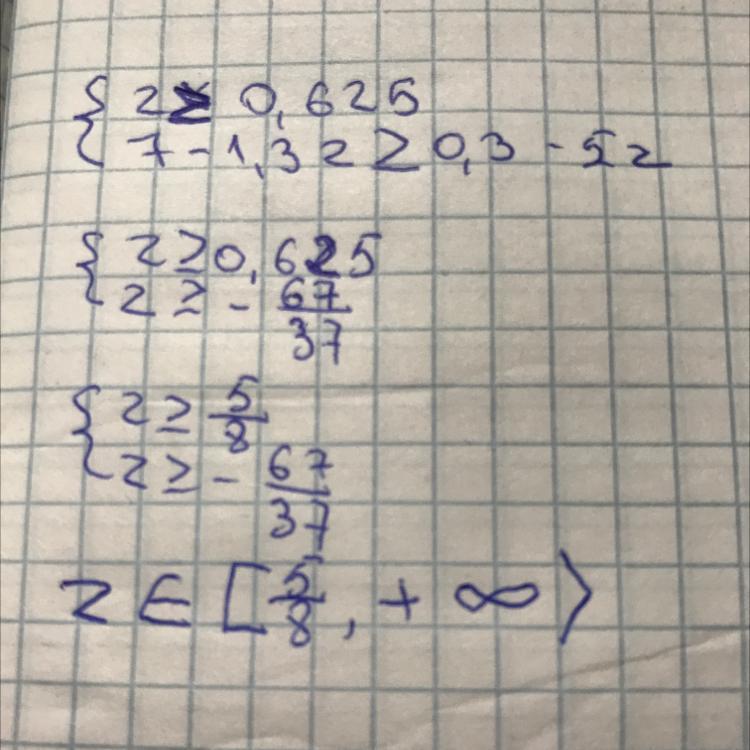 { z ≥ 0,625
7 - 1,3z ≥ 0,3 - 5z
{ z ≥ 0,625
z ≥ - 67/37
{ z ≥ 5/8
z ≥ - 67/37
z ∈ [5/8, + ∞⟩